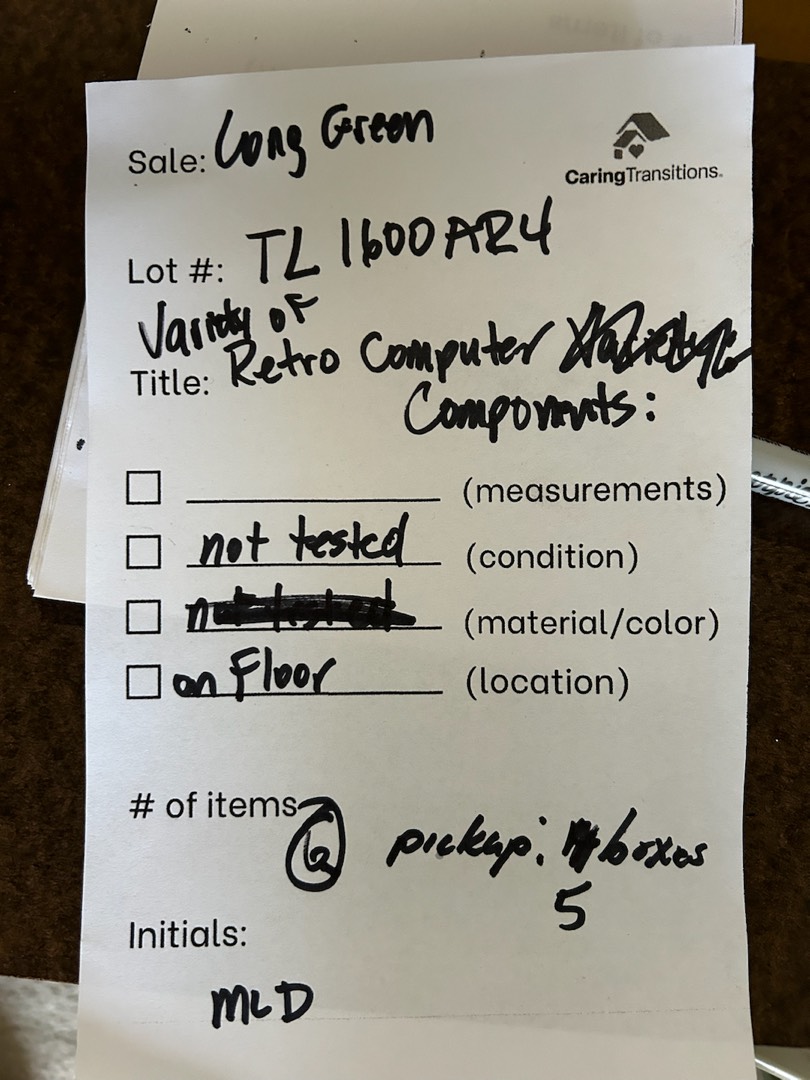 Sale: Long Green
CaringTransitions.
Lot #: TL 1600AR4
Variety of
Title: Retro Computer
Components:
(measurements)
not tested (condition)
(material/color)
on Floor (location)
# of items
pickup: boxes
5
Initials:
MLD